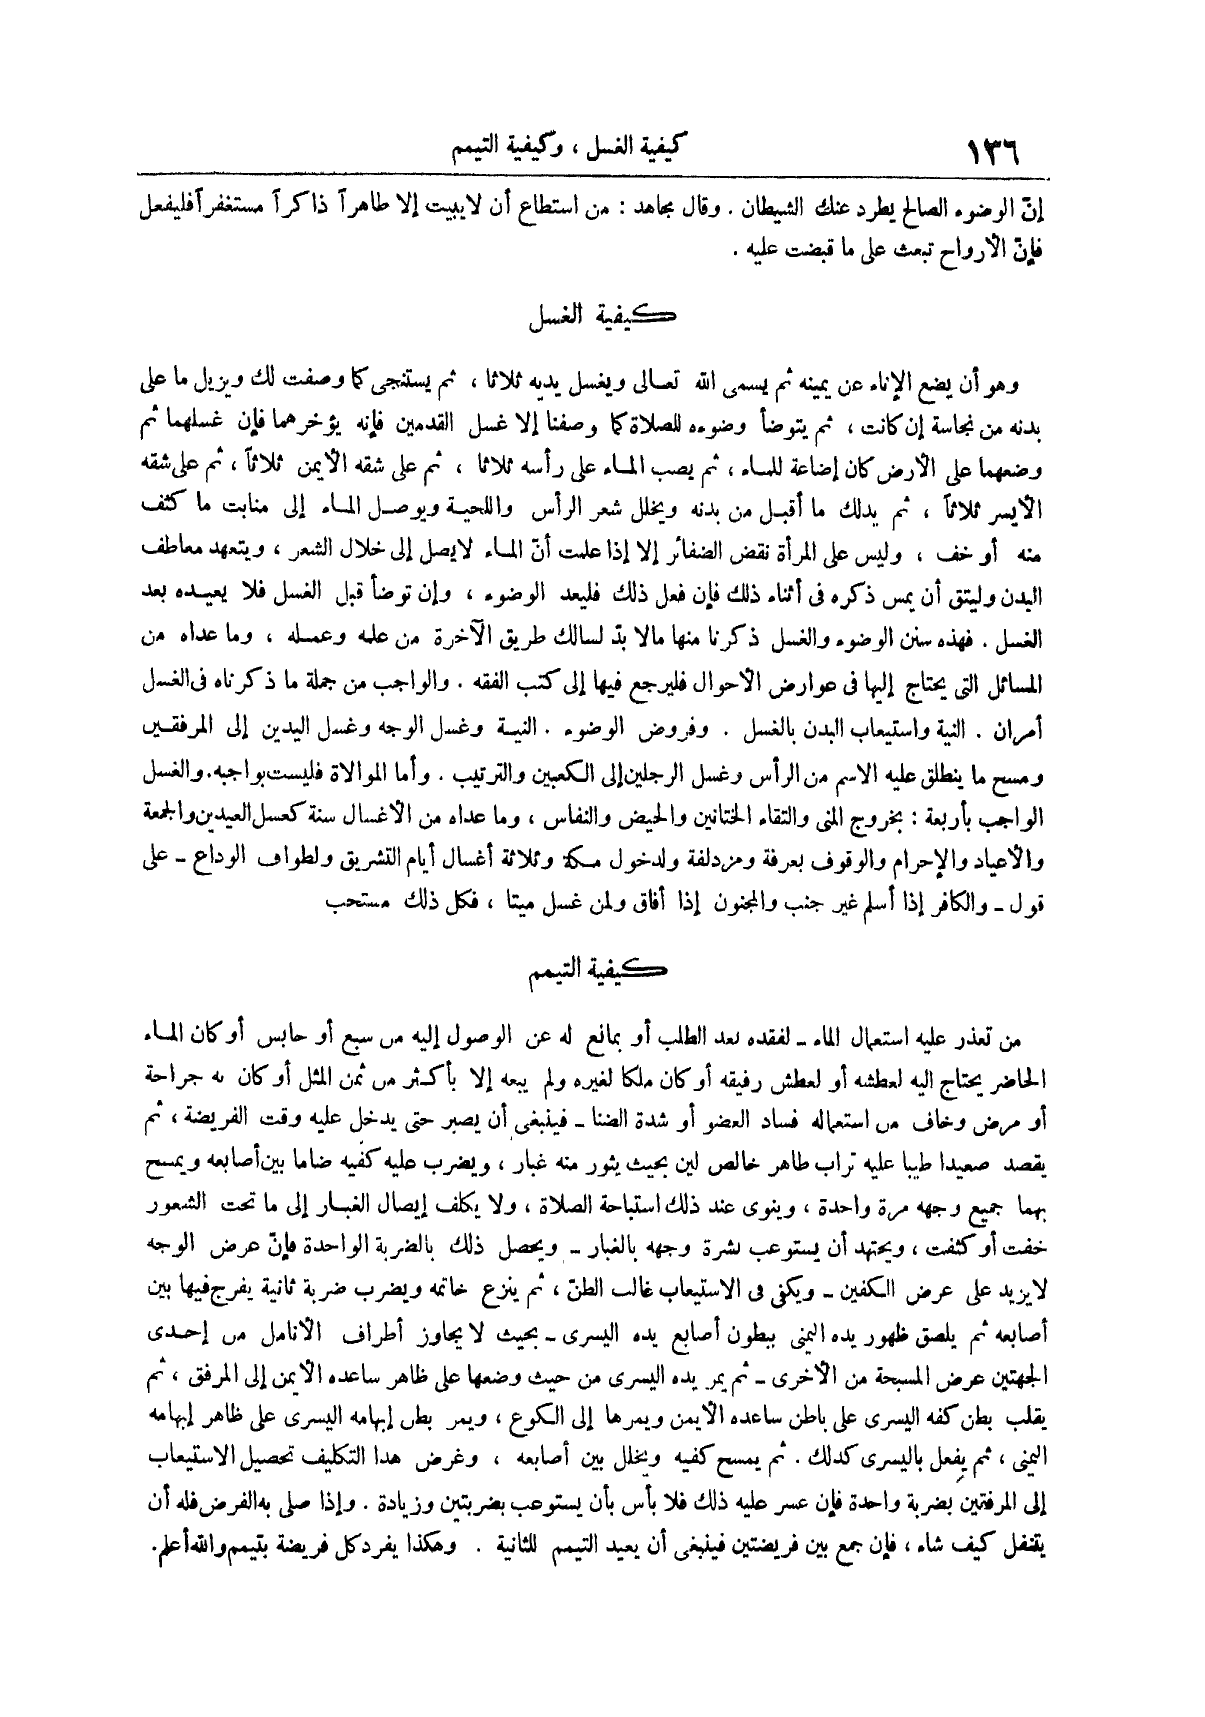 ١٣٦ كيفية الغسل ، وكيفية التيمم
إنّ الوضوء الصالح يطرد عنك الشيطان . وقال مجاهد : من استطاع أن لايبيت إلا طاهراً ذاكراً مستغفراً فليفعل
فإنّ الأرواح تبعث على ما قبضت عليه .
كيفية الغسل
وهو أن يضع الإناء عن يمينه ثم يسمى الله تعالى ويغسل يديه ثلاثا ، ثم يستنجى كما وصفت لك ويزيل ما على
بدنه من نجاسة إن كانت ، ثم يتوضأ وضوءه للصلاة كما وصفنا إلا غسل القدمين فإنه يؤخرهما فإن غسلهما ثم
وضعهما على الأرض كان إضاعة للماء ، ثم يصب الماء على رأسه ثلاثا ، ثم على شقه الأيمن ثلاثاً ، ثم على شقه
الأيسر ثلاثاً ، ثم يدلك ما أقبل من بدنه ويخلل شعر الرأس واللحية ويوصل الماء إلى منابت ما كثف
منه أو خف ، وليس على المرأة نقض الضفائر إلا إذا علمت أنّ الماء لايصل إلى خلال الشعر ، ويتعهد معاطف
البدن وليتق أن يمس ذكره فى أثناء ذلك فإن فعل ذلك فليعد الوضوء ، وإن توضأ قبل الغسل فلا يعيده بعد
الغسل . فهذه سنن الوضوء والغسل ذكرنا منها مالا بدّ لسالك طريق الآخرة من علمه وعمله ، وما عداه من
المسائل التى يحتاج إليها فى عوارض الأحوال فليرجع فيها إلى كتب الفقه . والواجب من جملة ما ذكرناه فى الغسل
أمران . النية واستيعاب البدن بالغسل . وفروض الوضوء . النية وغسل الوجه وغسل اليدين إلى المرفقين
ومسح ما ينطلق عليه الاسم من الرأس وغسل الرجلين إلى الكعبين والترتيب . وأما الموالاة فليست بواجبه. والغسل
الواجب بأربعة : بخروج المنى والتقاء الختانين والحيض والنفاس ، وما عداه من الأغسال سنة كغسل العيدين والجمعة
والأعياد والإحرام والوقوف بعرفة ومزدلفة ولدخول مكة وثلاثة أغسال أيام التشريق ولطواف الوداع ــ على
قول ــ والكافر إذا أسلم غير جنب والمجنون إذا أفاق ولمن غسل ميتا ، فكل ذلك مستحب
كيفية التيمم
من تعذر عليه استعمال الماء ــ لفقده بعد الطلب أو بمانع له عن الوصول إليه من سبع أو حابس أو كان الماء
الحاضر يحتاج اليه لعطشه أو لعطش رفيقه أو كان ملكا لغيره ولم يبعه إلا بأكثر من ثمن المثل أو كان به جراحة
أو مرض وخاف من استعماله فساد العضو أو شدة الضنا ــ فينبغى أن يصبر حتى يدخل عليه وقت الفريضة ، ثم
يقصد صعيدا طيبا عليه تراب طاهر خالص لين بحيث يثور منه غبار ، ويضرب عليه كفيه ضاما بين أصابعه ويمسح
بهما جميع وجهه مرة واحدة ، وينوى عند ذلك استباحة الصلاة ، ولا يكلف إيصال الغبار إلى ما تحت الشعور
خفت أو كثفت ، ويجتهد أن يستوعب بشرة وجهه بالغبار ــ ويحصل ذلك بالضربة الواحدة فإنّ عرض الوجه
لايزيد على عرض الكفين ــ ويكفى فى الاستيعاب غالب الظنّ ، ثم ينزع خاتمه ويضرب ضربة ثانية يفرج فيها بين
أصابعه ثم يلصق ظهور يده اليمنى ببطون أصابع يده اليسرى ــ بحيث لا يجاوز أطراف الأنامل من إحدى
الجهتين عرض المسبحة من الأخرى ــ ثم يمر يده اليسرى من حيث وضعها على ظاهر ساعده الأيمن إلى المرفق ، ثم
يقلب بطن كفه اليسرى على باطن ساعده الأيمن ويمرها إلى الكوع ، ويمر بطن إبهامه اليسرى على ظاهر إبهامه
اليمنى ، ثم يفعل باليسرى كذلك . ثم يمسح كفيه ويخلل بين أصابعه ، وغرض هذا التكليف تحصيل الاستيعاب
إلى المرفقين بضربة واحدة فإن عسر عليه ذلك فلا بأس بأن يستوعب بضربتين وزيادة . وإذا صلى به الفرض فله أن
يتنفل كيف شاء ، فإن جمع بين فريضتين فينبغى أن يعيد التيمم للثانية . وهكذا يفرد كل فريضة بتيمم والله أعلم.